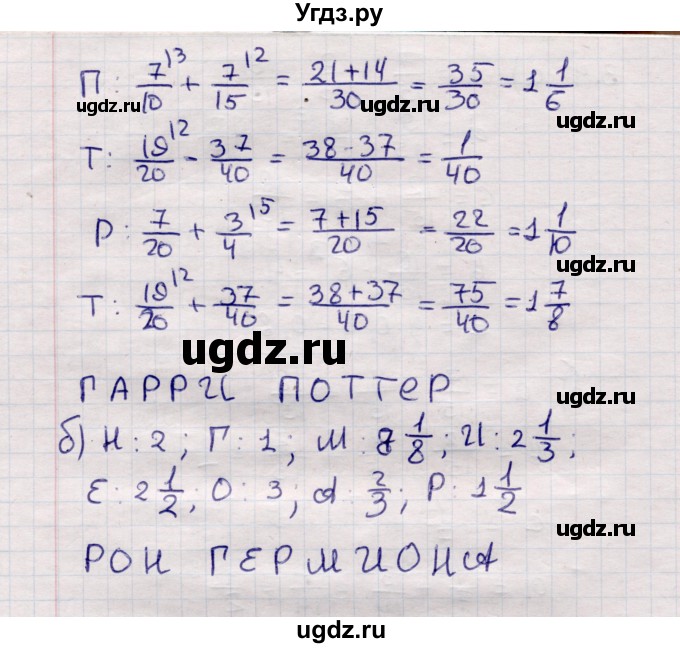 Угдз.ру
П: 7/10 ^13 + 7/15 ^12 = 21+14/30 = 35/30 = 1 1/6
ugdz.ru ugdz.ru ugdz.ru
Т: 19/20 ^12 - 37/40 = 38-37/40 = 1/40
Р: 7/20 + 3/4 ^15 = 7+15/20 = 22/20 = 1 1/10
ugdz.ru
Т: 19/20 ^12 + 37/40 = 38+37/40 = 75/40 = 1 7/8
ugdz.ru
ГАРРИ ПОТТЕР
б) Н: 2; Г: 1; М: 8 1/8; И: 2 1/3;
Е: 2 1/2; О: 3; А: 2/3; Р: 1 1/2
ugdz.ru
РОН ГЕРМИОНА
ugdz.ru
ugdz.ru